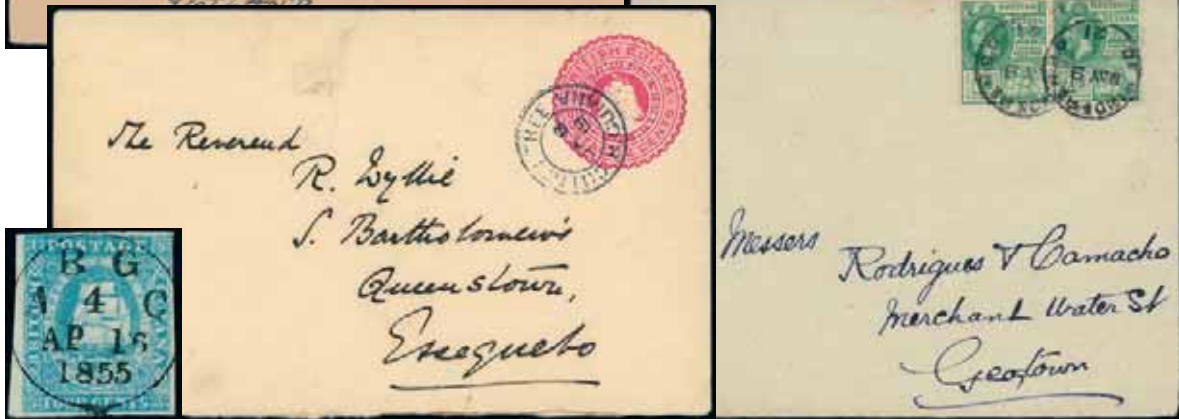 The Reverend
R. Wyllie
S. Bartholomew's
Queenstown,
Essequebo
POSTAGE
B G
A 4 C
AP 16
1855
FOUR CENTS
Messers
Rodrigues & Camacho
Merchant Water St
Geotown